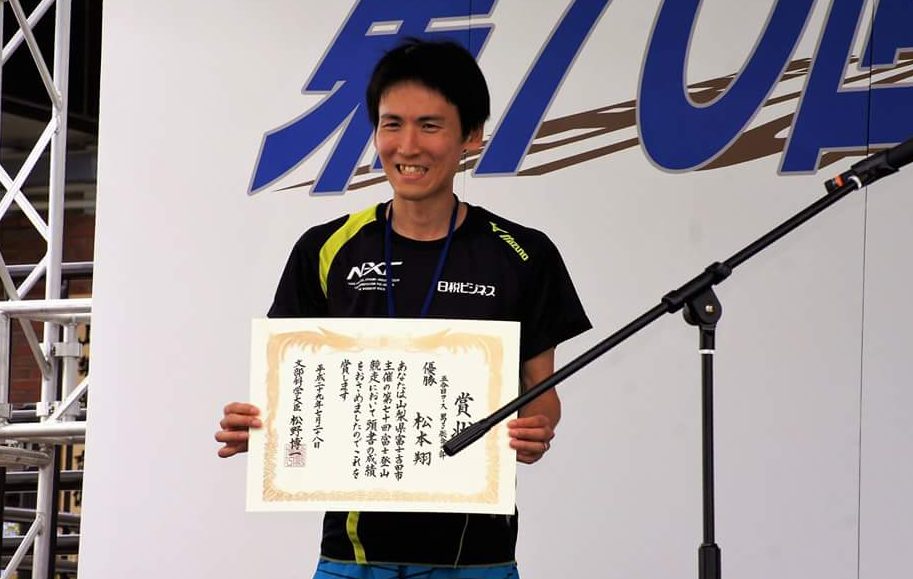 第70回
MIZUNO
NEXT
日税ビジネス
賞状
五合目コース 男子
優勝 松本翔
あなたは山梨県富士吉田市
主催の第七十回富士登山
競走において頭書の成績
をおさめましたのでこれを
賞します
平成二十九年七月二十八日
文部科学大臣 松野博一